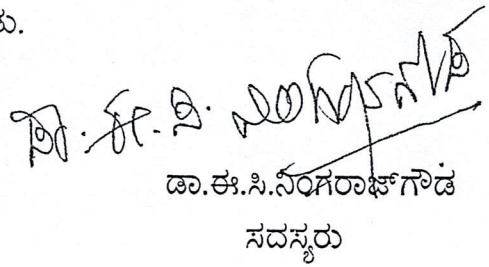 ರು.
ಡಾ. ಈ. ಸಿ. ನಿಂಗರಾಜ್‌ಗೌಡ
ಡಾ.ಈ.ಸಿ.ನಿಂಗರಾಜ್‌ಗೌಡ
ಸದಸ್ಯರು